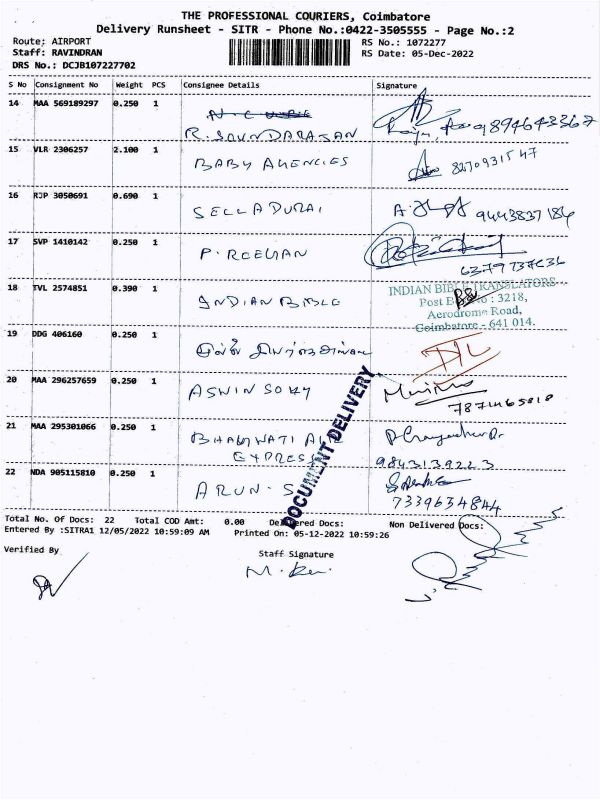 THE PROFESSIONAL COURIERS, Coimbatore
Delivery Runsheet - SITR - Phone No.:0422-3505555 - Page No.:2
Route; AIRPORT
RS No.: 1072277
Staff: RAVINDRAN
RS Date: 05-Dec-2022
DRS No.: DCJB107227702
S No Consignment No Weight PCS Consignee Details Signature
14 MAA 569189297 0.250 1
R. SOUNDARAJAN 9894643367
15 VLR 2306257 2.100 1 BABY AGENCIES
16 RJP 3050691 0.690 1 SELLADURAI 9443837184
17 SVP 1410142 0.250 1 P.
18 TVL 2574851 0.390 1 INDIAN BIBLE
INDIAN BIBLE TRANSLATORS
Post B No : 3218,
Aerodrome Road,
Coimbatore - 641 014.
19 DDG 406160 0.250 1
20 MAA 296257659 0.250 1 ASWIN
21 MAA 295301066 0.250 1 BHAGWATI AIR
EXPRESS 9843139223
22 NDA 905115810 0.250 1 ARUN. S
7339634844
DOCUMENT DELIVERY
Total No. Of Docs: 22 Total COD Amt: 0.00 Delivered Docs: Non Delivered Docs:
Entered By :SITRA1 12/05/2022 10:59:09 AM Printed On: 05-12-2022 10:59:26
Verified By
Staff Signature